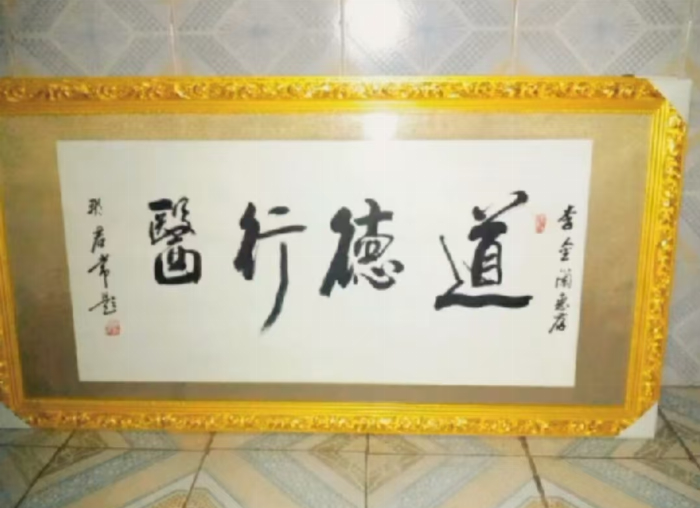 李金阁惠存
道德行醫
君常题